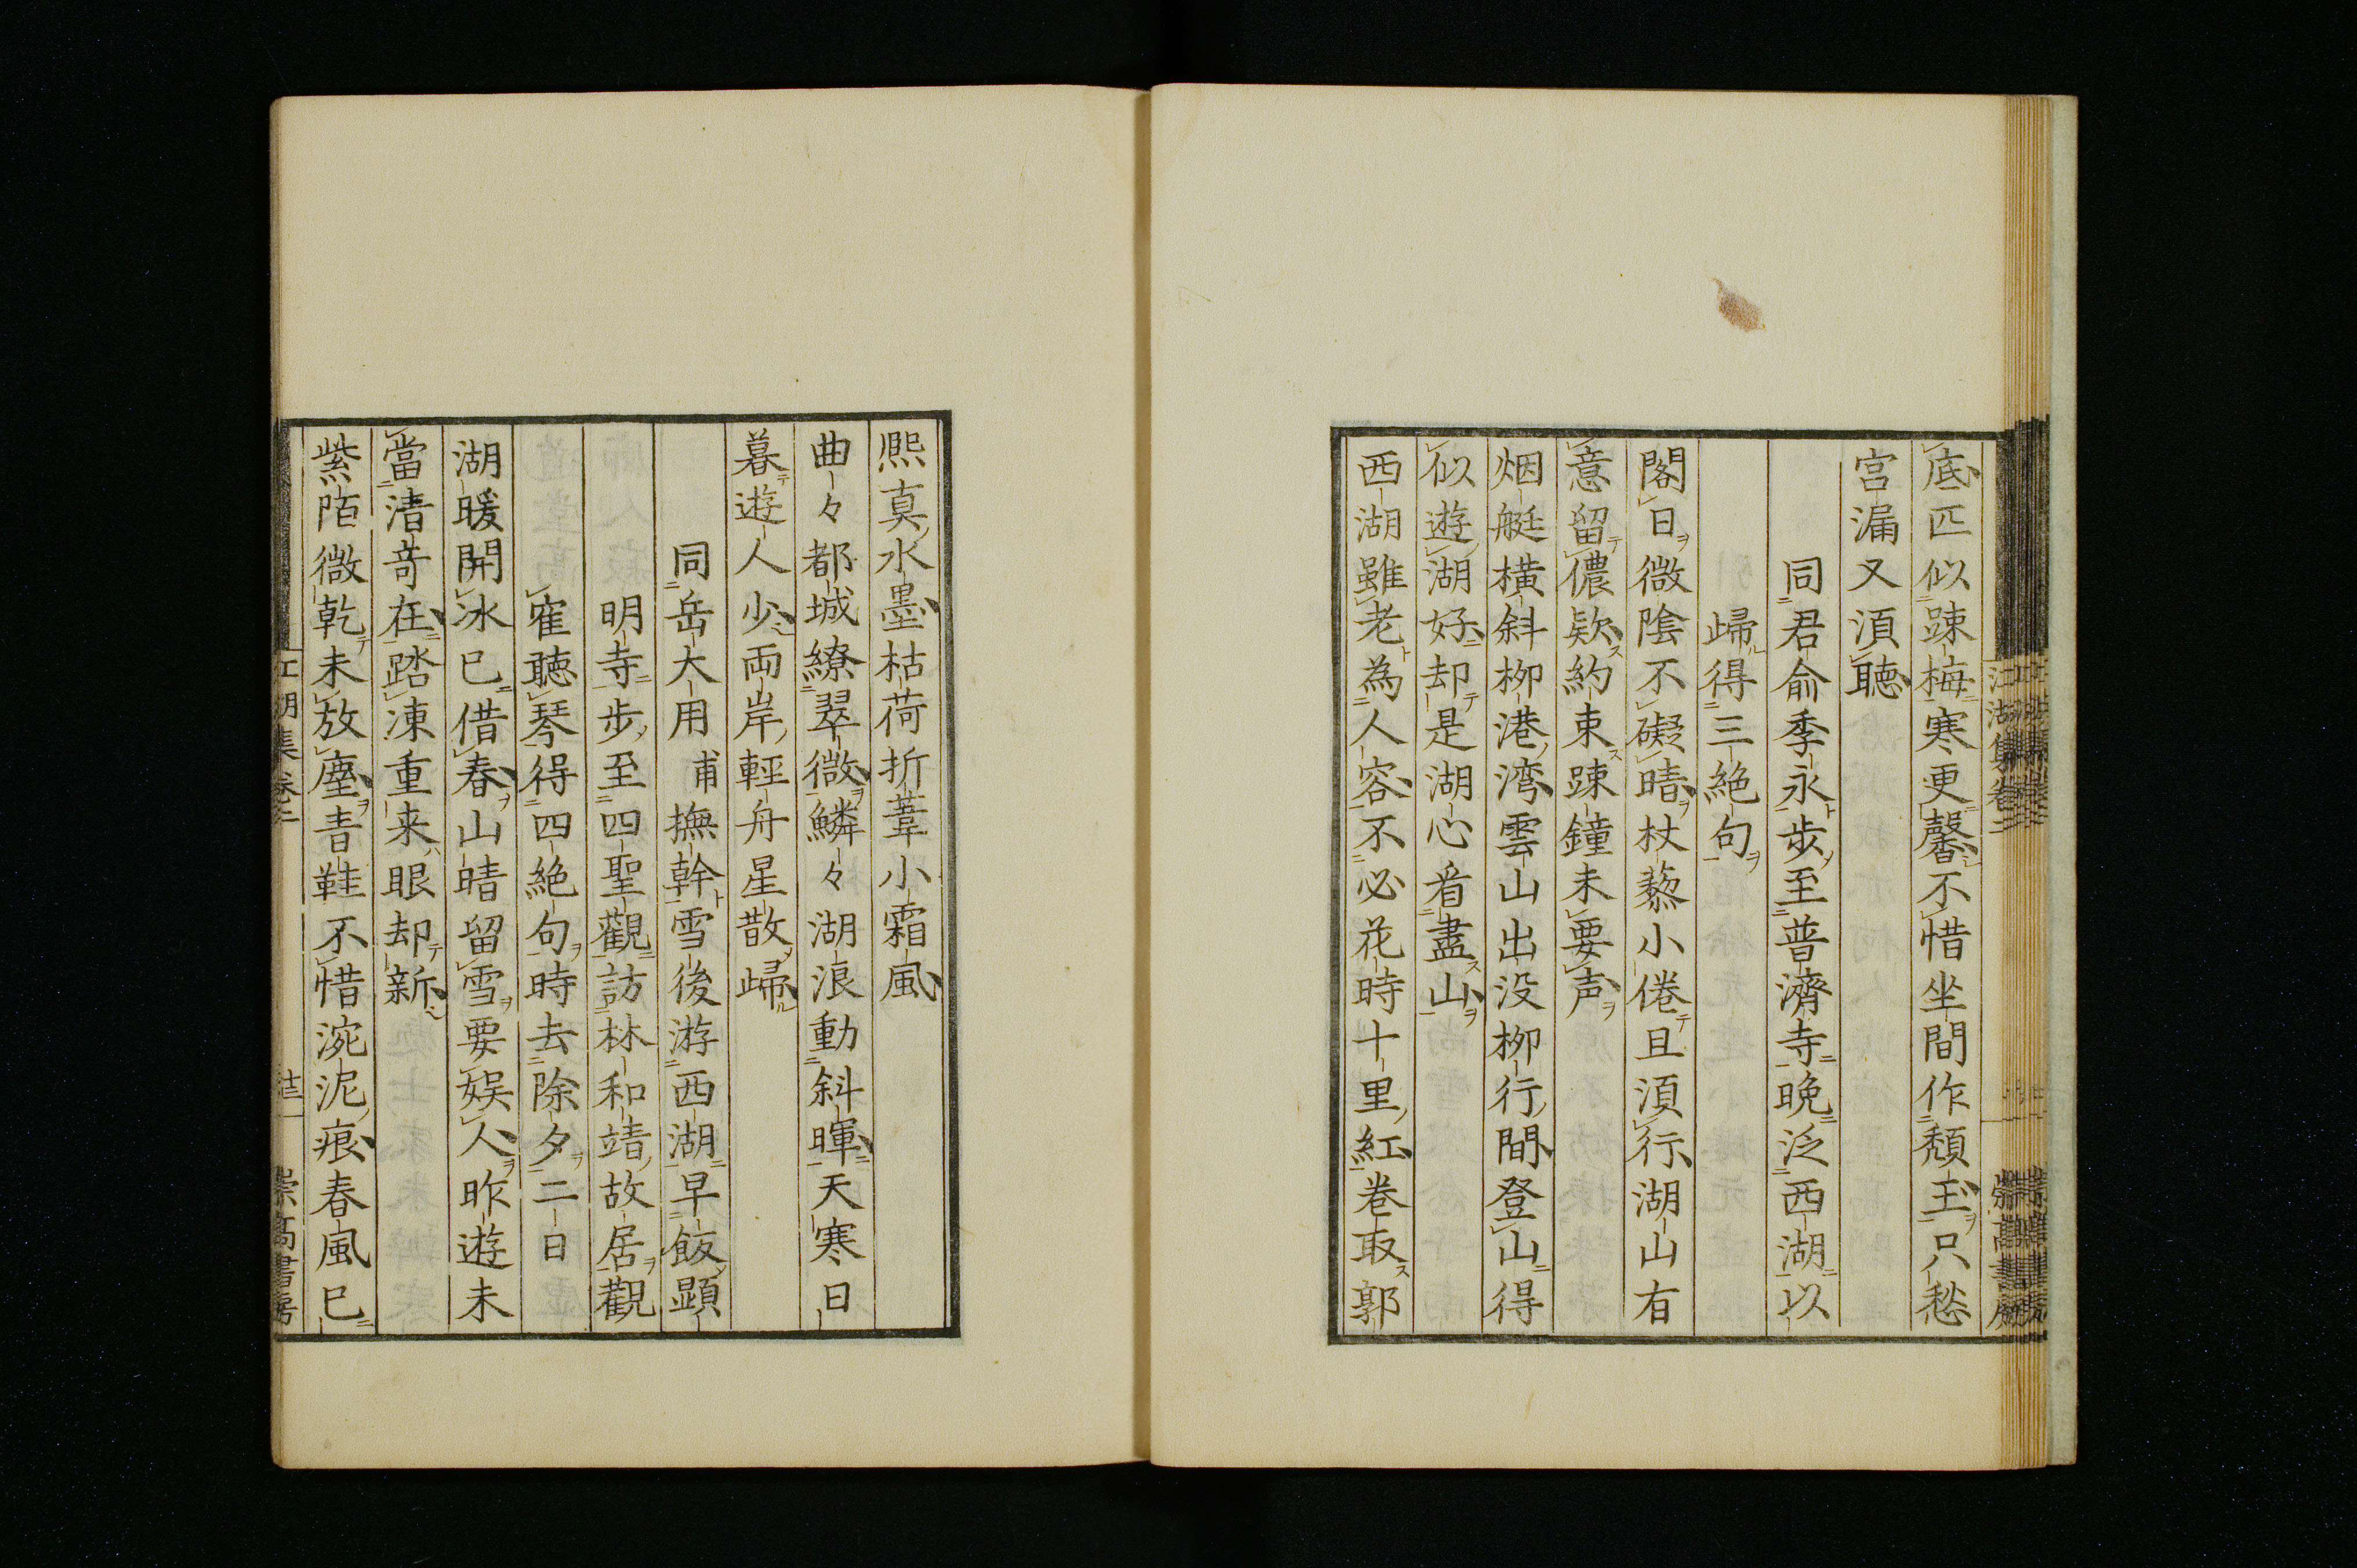 底匹似踈梅寒更馨不惜坐間作頹玉只愁
宮漏又須聽
同君俞季永步至普濟寺晩泛西湖以
歸得三絶句
閣日微陰不礙晴杖藜小倦且須行湖山有
意留儂欵約束踈鐘未要声
烟艇橫斜柳港湾雲山出没柳行間登山得
似遊湖好却是湖心看盡山
西湖雖老為人容不必花時十里紅卷取郭
熙真水墨枯荷折葦小霜風
曲々都城繚翠微鱗々湖浪動斜暉天寒日
暮遊人少両岸輕舟星散歸
同岳大用甫撫幹雪後游西湖早飯顕
明寺步至四聖觀訪林和靖故居觀
寉聽琴得四絶句時去除夕二日
湖暖開冰已借春山晴留雪要娯人昨遊未
當清竒在踏凍重来眼却新
紫陌微乾未放塵青鞋不惜涴泥痕春風已
江湖集卷二
崇高書房